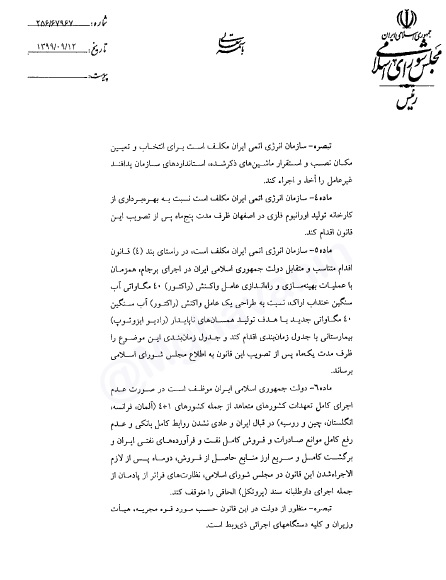 شماره: ۲۵۶/۶۷۹۶۷
تاریخ: ۱۳۹۹/۰۹/۱۲
پیوست:
باسمه تعالی
جمهوری اسلامی ایران
مجلس شورای اسلامی
رئیس
تبصره- سازمان انرژی اتمی ایران مکلف است برای انتخاب و تعیین
مکان نصب و استقرار ماشین‌های ذکرشده، استانداردهای سازمان پدافند
غیرعامل را أخذ و اجراء کند.
ماده۴- سازمان انرژی اتمی ایران مکلف است نسبت به بهره‌برداری از
کارخانه تولید اورانیوم فلزی در اصفهان ظرف مدت پنج‌ماه پس از تصویب این
قانون اقدام کند.
ماده۵- سازمان انرژی اتمی ایران مکلف است، در راستای بند (۴) قانون
اقدام متناسب و متقابل دولت جمهوری اسلامی ایران در اجرای برجام، همزمان
با عملیات بهینه‌سازی و راه‌اندازی عامل واکنش (راکتور) ۴۰ مگاواتی آب
سنگین خنداب اراک، نسبت به طراحی یک عامل واکنش (راکتور) آب سنگین
۴۰ مگاواتی جدید با هدف تولید همسان‌های ناپایدار (رادیو ایزوتوپ)
بیمارستانی با جدول زمان‌بندی اقدام کند و جدول زمان‌بندی این موضوع را
ظرف مدت یک‌ماه پس از تصویب این قانون به اطلاع مجلس شورای اسلامی
برساند.
ماده۶- دولت جمهوری اسلامی ایران موظف است در صورت عدم
اجرای کامل تعهدات کشورهای متعاهد از جمله کشورهای ۱+۴ (آلمان، فرانسه،
انگلستان، چین و روسیه) در قبال ایران و عادی نشدن روابط کامل بانکی و عدم
رفع کامل موانع صادرات و فروش کامل نفت و فرآورده‌های نفتی ایران و
برگشت کامل و سریع ارز منابع حاصل از فروش، دوماه پس از لازم
الاجراءشدن این قانون در مجلس شورای اسلامی، نظارت‌های فراتر از پادمان از
جمله اجرای داوطلبانه سند (پروتکل) الحاقی را متوقف کند.
تبصره- منظور از دولت در این قانون حسب مورد قوه مجریه، هیأت
وزیران و کلیه دستگاههای اجرائی ذی‌ربط است.